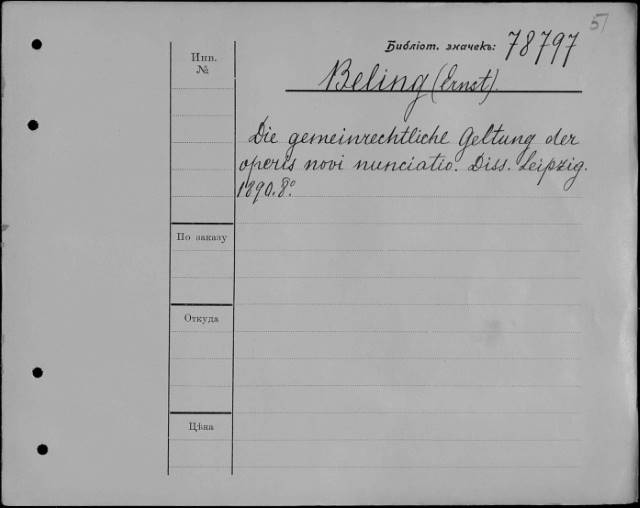 51
Библіот. значекъ: 78797
Инв.
№
Beling (Ernst).
Die gemeinrechtliche Geltung der
operis novi nunciatio. Diss. Leipzig.
1890. 8º.
По заказу
Откуда
Цѣна